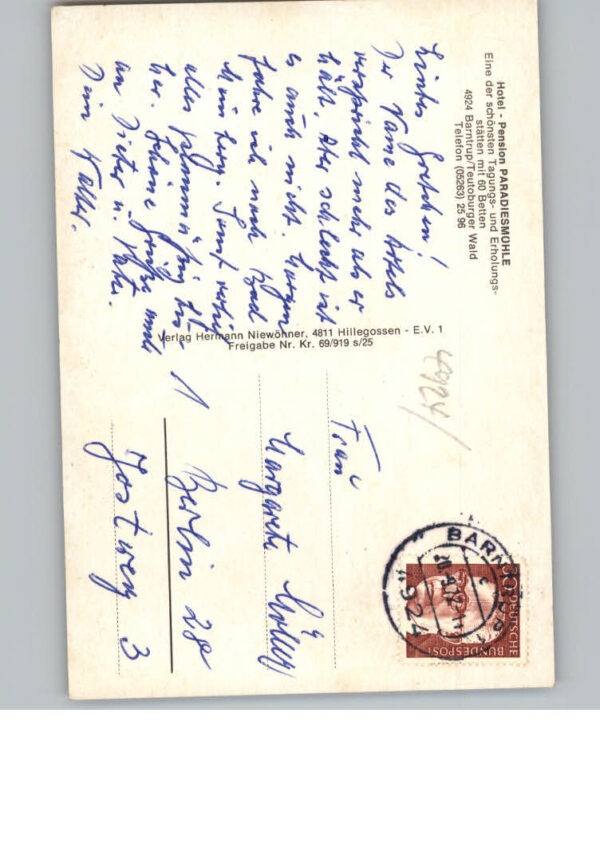 Hotel - Pension PARADIESMÜHLE
Eine der schönsten Tagungs- und Erholungs-
stätten mit 60 Betten
4924 Barntrup/Teutoburger Wald
Telefon (05263) 25 96
Liebes Gretchen!
Der Name des Hotels
verspricht mehr als er
hält. Aber schlecht ist
es auch nicht. Morgen
fahre ich nach Bad
alles
her. Schöne Grüße auch
an Dieter u.
Dein Walter.
Verlag Hermann Niewöhner, 4811 Hillegossen - E.V. 1
Freigabe Nr. Kr. 69/919 s/25
4924/
Frau
Margarete
1 Berlin 28
Jostweg 3
BARNTRUP 1
4924
DEUTSCHE
BUNDESPOST